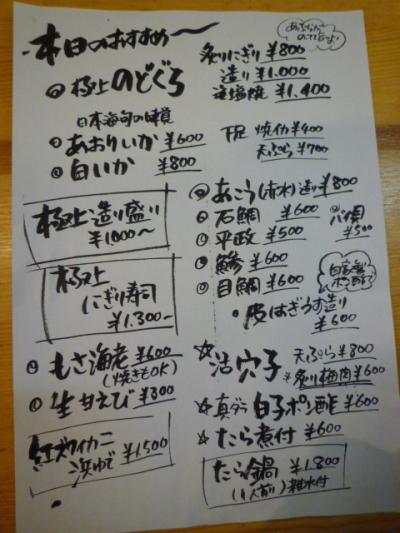 本日のおすすめ〜
極上のどぐろ
炙りにぎり ¥800
造り ¥1,000
塩焼 ¥1,400
日本海旬の味覚
あおりいか ¥600
白いか ¥800
下足 焼イカ ¥400
天ぷら ¥700
極上造り盛り
¥1000〜
極上
にぎり寿司
¥1,300〜
もさ海老 ¥600
(焼きもOK)
生甘えび ¥300
紅ズワイカニ
浜ゆで ¥1,500
あこう(赤水)造り ¥800
石鯛 ¥600
バイ貝
¥500
平政 ¥500
鯵 ¥600
目鯛 ¥600
自家製
ポン酢で
皮はぎうす造り
¥600
☆活穴子 天ぷら ¥800
炙り梅肉 ¥600
☆真ダラ白子ポン酢 ¥600
☆たら煮付 ¥600
たら鍋 ¥1,800
(1人前) 雑炊付